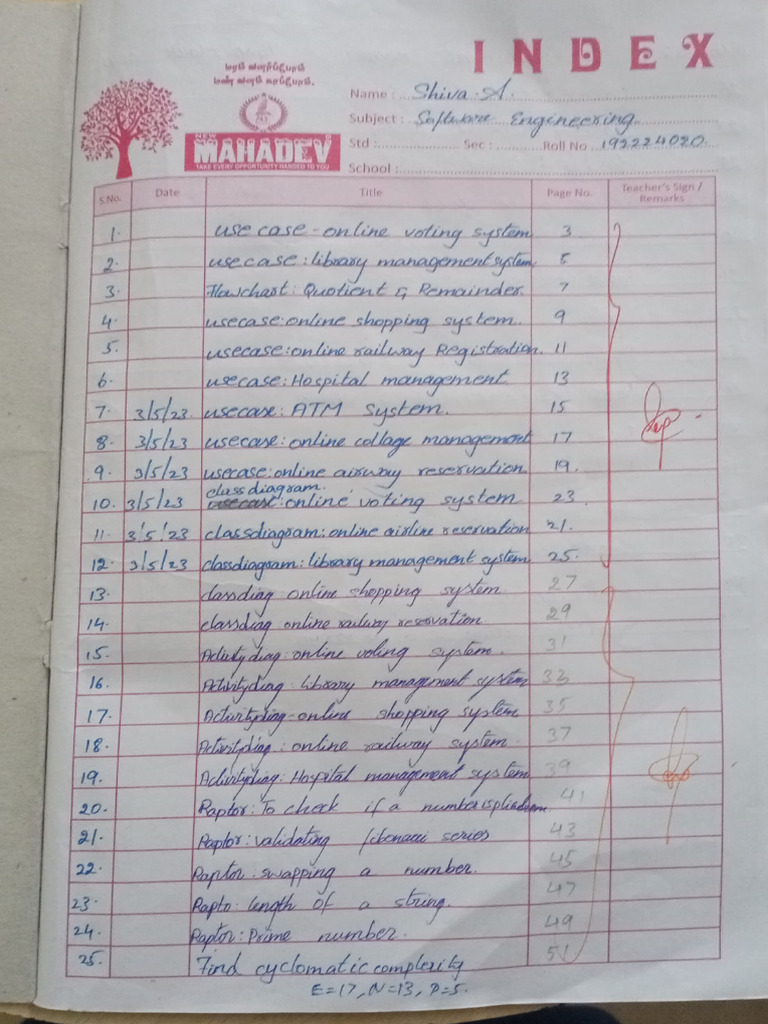 INDEX
மரம் வளர்ப்போம்
மண் வளம் காப்போம்.
NEW
MAHADEV
TAKE EVERY OPPORTUNITY HANDED TO YOU
Name : Shiva. A.
Subject : Software Engineering
Std : Sec : Roll No 192224020.
School :
S.No. Date Title Page No. Teacher's Sign / Remarks
1. use case - online voting system 3
2. usecase : library management system 5
3. Flowchart : Quotient & Remainder. 7
4. usecase : online shopping system. 9
5. usecase : online railway Registration. 11
6. usecase : Hospital management 13
7. 3/5/23. usecase : ATM system. 15
8. 3/5/23 usecase : online collage management 17
9. 3/5/23 usecase : online airway reservation 19.
10. 3/5/23 classdiagram. usecase : online voting system 23
11. 3/5/23 classdiagram : online airline reservation 21.
12. 3/5/23 classdiagram : library management system 25.
13. classdiag online shopping system. 27
14. classdiag online railway reservation. 29
15. Activitydiag : online voting system. 31
16. Activitydiag : library management system 33
17. Activitydiag - online shopping system 35
18. Activitydiag : online railway system. 37
19. Activitydiag : Hospital management system 39
20. Raptor : To check if a number is 41
21. Raptor : validating fibonacci series 43
22. Raptor swapping a number. 45
23. Rapto : length of a string. 47
24. Raptor : Prime number. 49
25. Find cyclomatic complexity 51
E=17, N=13, P=5.